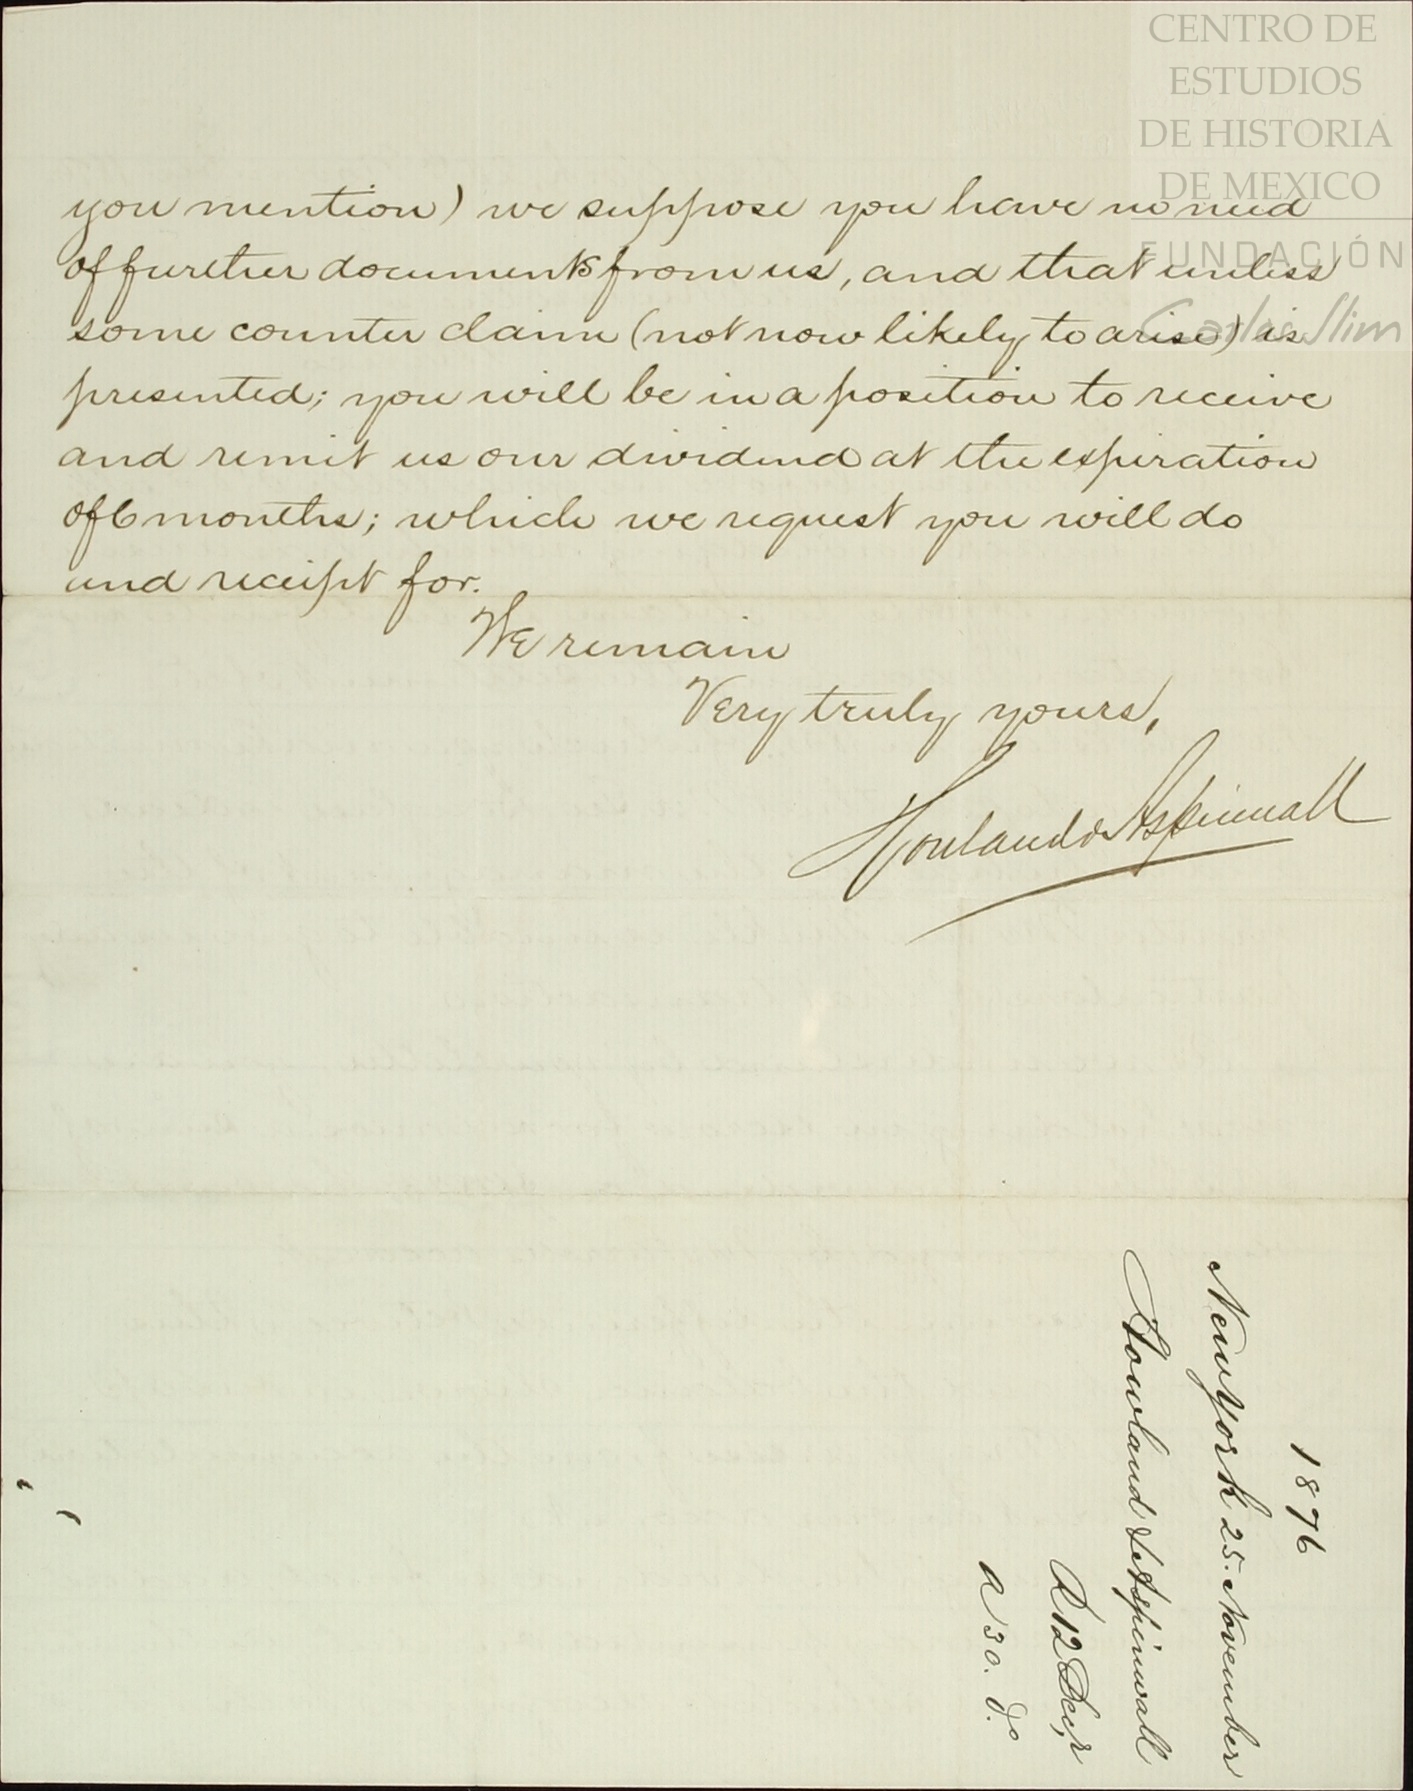 CENTRO DE
ESTUDIOS
DE HISTORIA
DE MEXICO
FUNDACIÓN
Carlos Slim
you mention) we suppose you have no need
of further documents from us, and that unless
some counter claim (not now likely to arise) is
presented; you will be in a position to receive
and remit us our dividend at the expiration
of 6 months; which we request you will do
and receipt for.
We remain
Very truly yours,
Howland & Aspinwall
1876
New York 25. November
Howland & Aspinwall
R 12 Decr
R 30. do.